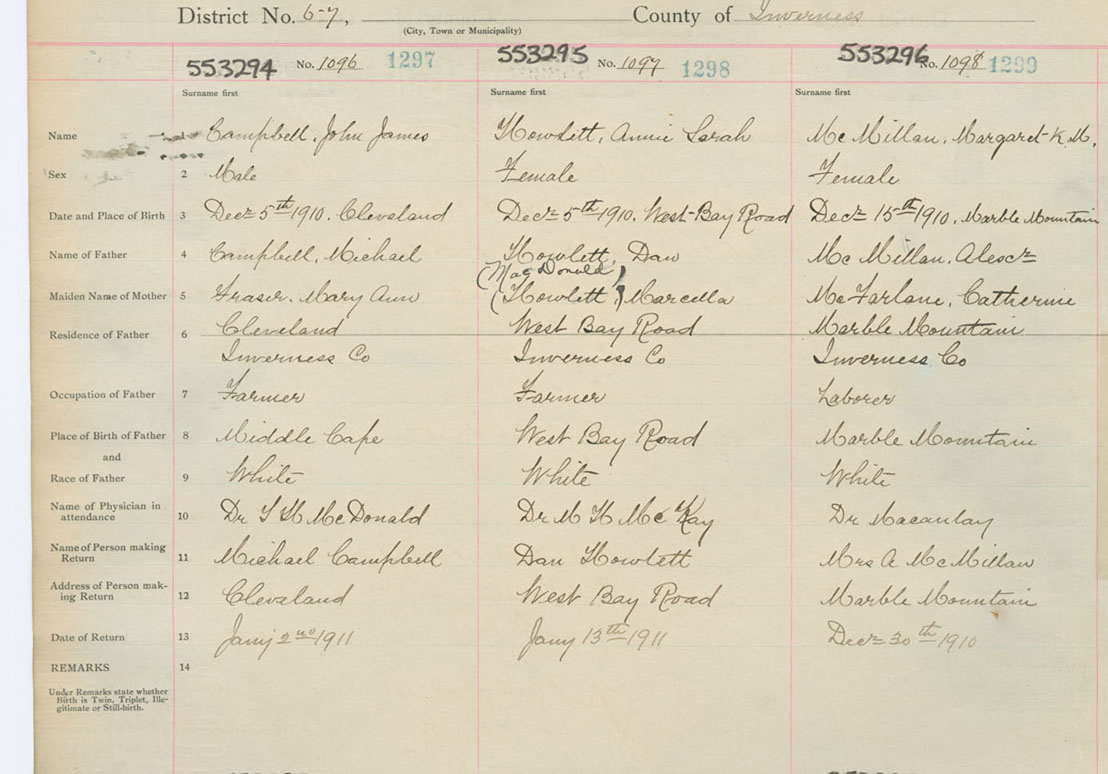 District No. 6-7, County of Inverness
(City, Town or Municipality)
553294 No. 1096 1297 553295 No. 1097 1298 553296 No. 1098 1299
Surname first Surname first Surname first
Name 1 Campbell, John James Howlett, Annie Sarah Mc Millan, Margaret K. M.
Sex 2 Male Female Female
Date and Place of Birth 3 Decr 5th 1910. Cleveland Decr 5th 1910. West Bay Road Decr 15th 1910. Marble Mountain
Name of Father 4 Campbell, Michael Howlett, Dan Mc Millan, Alexr
(MacDonald)
Maiden Name of Mother 5 Fraser, Mary Ann (Howlett) Marcella McFarlane, Catherine
Residence of Father 6 Cleveland West Bay Road Marble Mountain
Inverness Co Inverness Co Inverness Co
Occupation of Father 7 Farmer Farmer Laborer
Place of Birth of Father 8 Middle Cape West Bay Road Marble Mountain
and
Race of Father 9 White White White
Name of Physician in
attendance 10 Dr McDonald Dr M H McKay Dr Macaulay
Name of Person making
Return 11 Michael Campbell Dan Howlett Mrs A McMillan
Address of Person mak-
ing Return 12 Cleveland West Bay Road Marble Mountain
Date of Return 13 Jany 2nd 1911 Jany 13th 1911 Decr 30th 1910
REMARKS 14
Under Remarks state whether
Birth is Twin, Triplet, Ille-
gitimate or Still-birth.